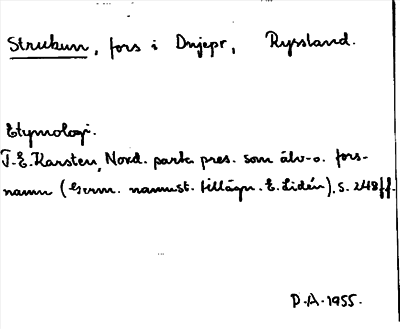 Strukun, fors i Dnjepr, Ryssland.
Etymologi.
T.E. Karsten, Nord. partc. pres. som älv-o. fors-
namn (Germ. namnst. tillägn. E. Lidén), s. 248 ff.
D.A. 1955.